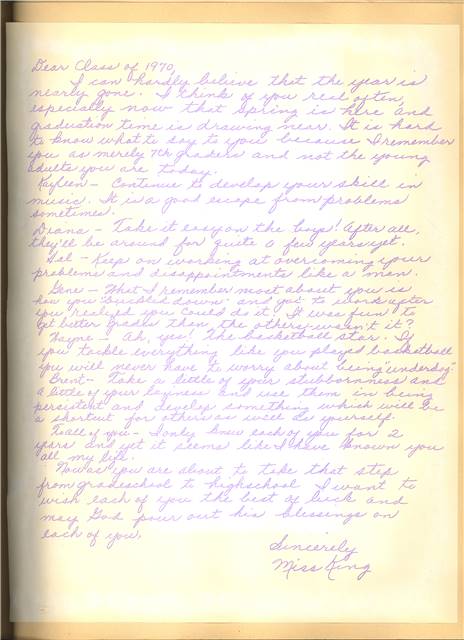 Dear Class of 1970,
I can hardly believe that the year is
nearly gone. I think of you real often,
especially now that spring is here and
graduation time is drawing near. It is hard
to know what to say to you because I remember
you as merely 7th graders and not the young
adults you are today.
Kayleen - Continue to develop your skill in
music. It is a good escape from problems
sometimes.
Diana - Take it easy on the boys! After all,
they'll be around for quite a few years yet.
Hal - Keep on working at overcoming your
problems and disappointments like a man.
Gene - What I remember most about you is
how you "buckled down" and got to work after
you realized you could do it. It was fun to
get better grades than the others, wasn't it?
Wayne - Ah, yes! The basketball star. If
you tackle everything like you played basketball
you will never have to worry about being "underdog."
Brent - Take a little of your stubbornness and
a little of your laziness and use them in being
persistent and develop something which will be
a shortcut for others as well as yourself.
To all of you - I only knew each of you for 2
years and yet it seems like I have known you
all my life.
Now as you are about to take that step
from gradeschool to highschool I want to
wish each of you the best of luck and
may God pour out his blessings on
each of you.
Sincerely
Miss King